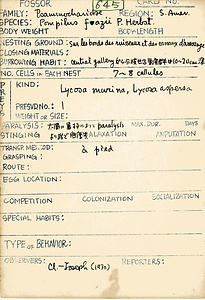 FOSSOR 645 CARD NO.
FAMILY: Psammocharidae REGION: S. Amer.
SPECIES: Pompilus foxii P. Herbst.
BODY WEIGHT BODY-LENGTH
NESTING GROUND: Sur les bords des ruisseaux et des canaux d'arrosage
CLOSING MATERIALS:
BURROWING HABIT: central gallery
NO. CELLS IN EACH NEST 7~8 cellules
PREY
SPECIES: Lycosa murina, Lycosa aspersa
PREY/UND. NO.: 1
WEIGHT OR SIZE:
PARALYSIS: paralysis MAX. DUR. DAYS
STINGING MALAXATION AMPUTATION
TRANSP. METHOD: à pied
GRASPING:
ROUTE:
EGG LOCATION:
COMPETITION COLONIZATION SOCIALIZATION
SPECIAL HABITS:
TYPE OF BEHAVIOR:
OBSERVERS: REPORTERS:
Cl.-Joseph (1930)